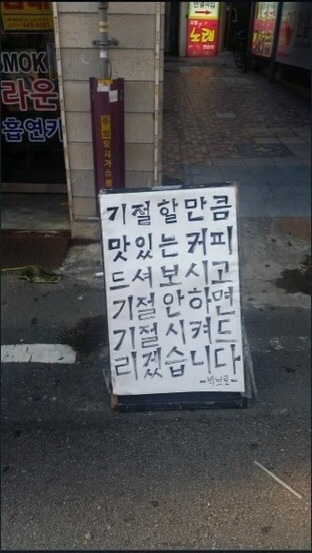 노래
MOK
라운
흡연카
주의도시가스관
기절할만큼
맛있는커피
드셔보시고
기절안하면
기절시켜드
리겠습니다